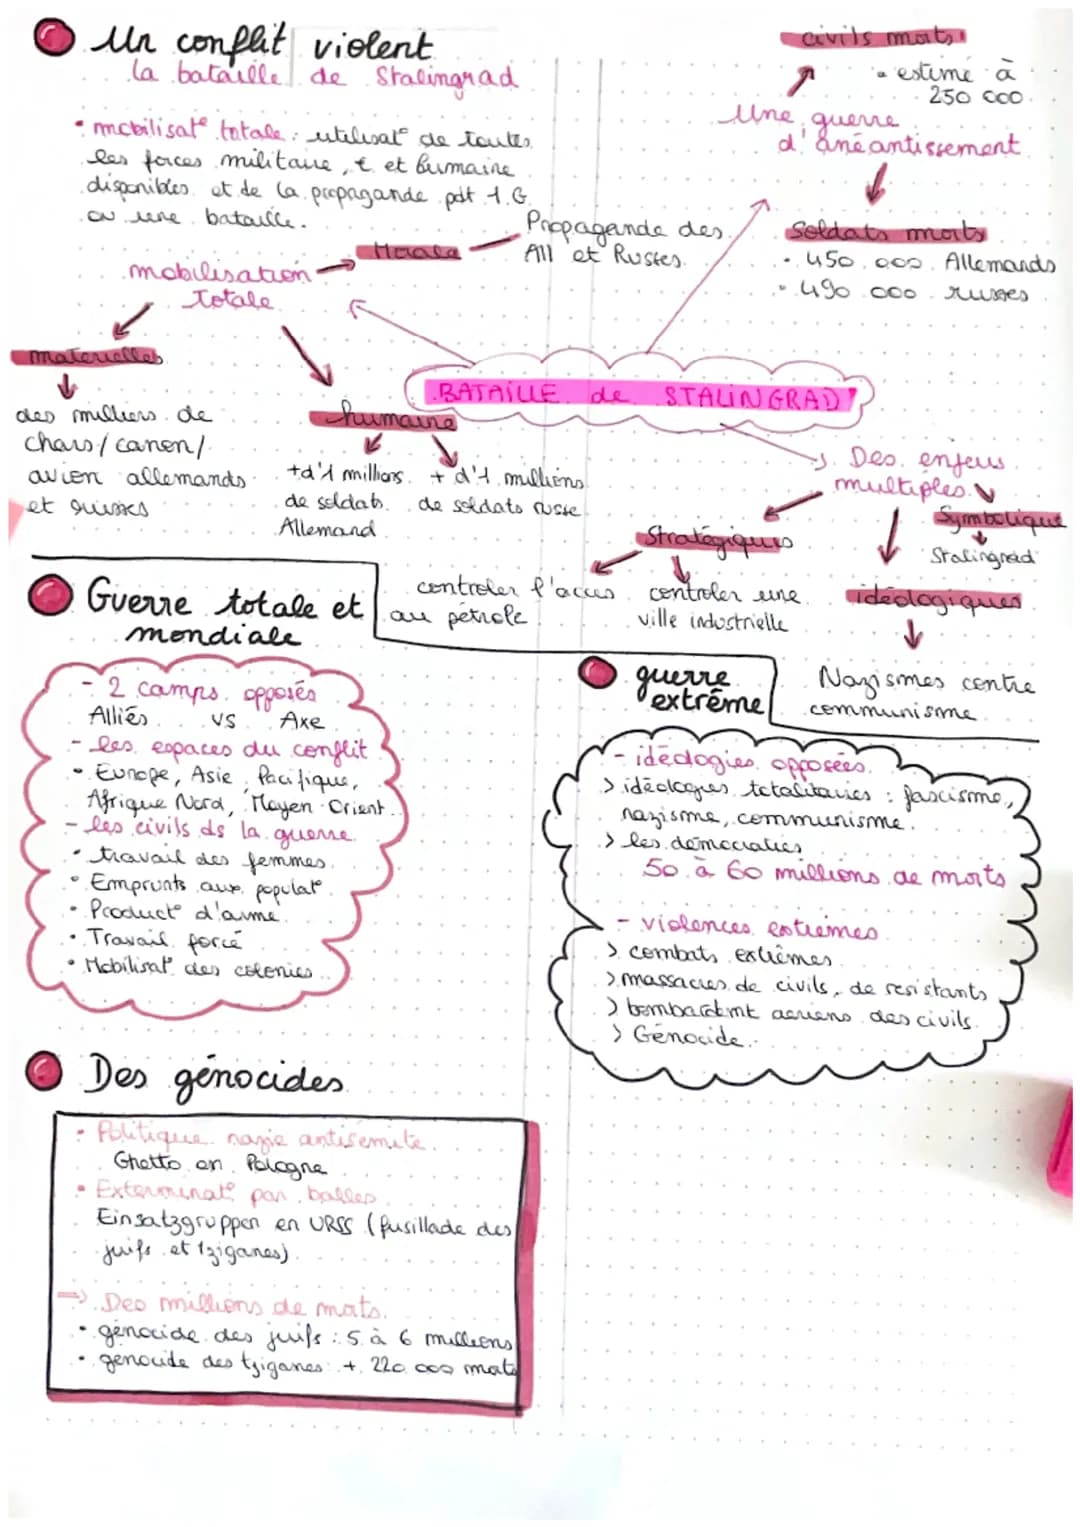 Un conflit violent
la bataille de Stalingrad
• mobilisat° totale : utilisat° de toutes
les forces militaire, € et humaine
disponibles et de la propagande pdt 1 G
ou une bataille.
mobilisation
totale
Morale
Propagande des
All et Russes
matérielles
des milliers de
chars / canon /
avion allemands
et russes
humaine
+ d'1 millions
de soldats
Allemand
+ d'1 millions
de soldats russe
BATAILLE de STALINGRAD
Une guerre
d'anéantissement
civils morts
• estimé à
250 000
Soldats morts
• 450 000 Allemands
• 490 000 russes
Des enjeux
multiples
Stratégiques
controler l'accès
au pétrole
controler une
ville industrielle
Symbolique
Stalingrad
idéologiques
Nazismes contre
communisme
Guerre totale et
mondiale
- 2 camps opposés
Alliés vs Axe
- les espaces du conflit
• Europe, Asie, Pacifique,
Afrique Nord, Moyen Orient
- les civils ds la guerre
• travail des femmes
• Emprunts aux populat°
• Product° d'arme
• Travail forcé
• Mobilisat° des colonies
guerre
extrême
- idéologies opposées
> idéologies totalitaires : fascisme,
nazisme, communisme.
> les démocraties
50 à 60 millions de morts
- violences extrêmes
> combats extrêmes
> massacres de civils, de resistants
> bombardemt aeriens des civils
> Génocide
Des génocides
• Politique nazie antisémite
Ghetto en Pologne
• Exterminat° par balles
Einsatzgruppen en URSS (fusillade des
juifs et tziganes)
=> Des millions de morts.
• génocide des juifs : 5 à 6 millions
• genocide des tziganes : + 220 000 morts